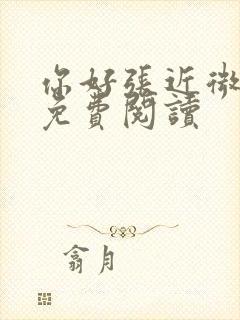 你好張近微
免費閱讀
翕月